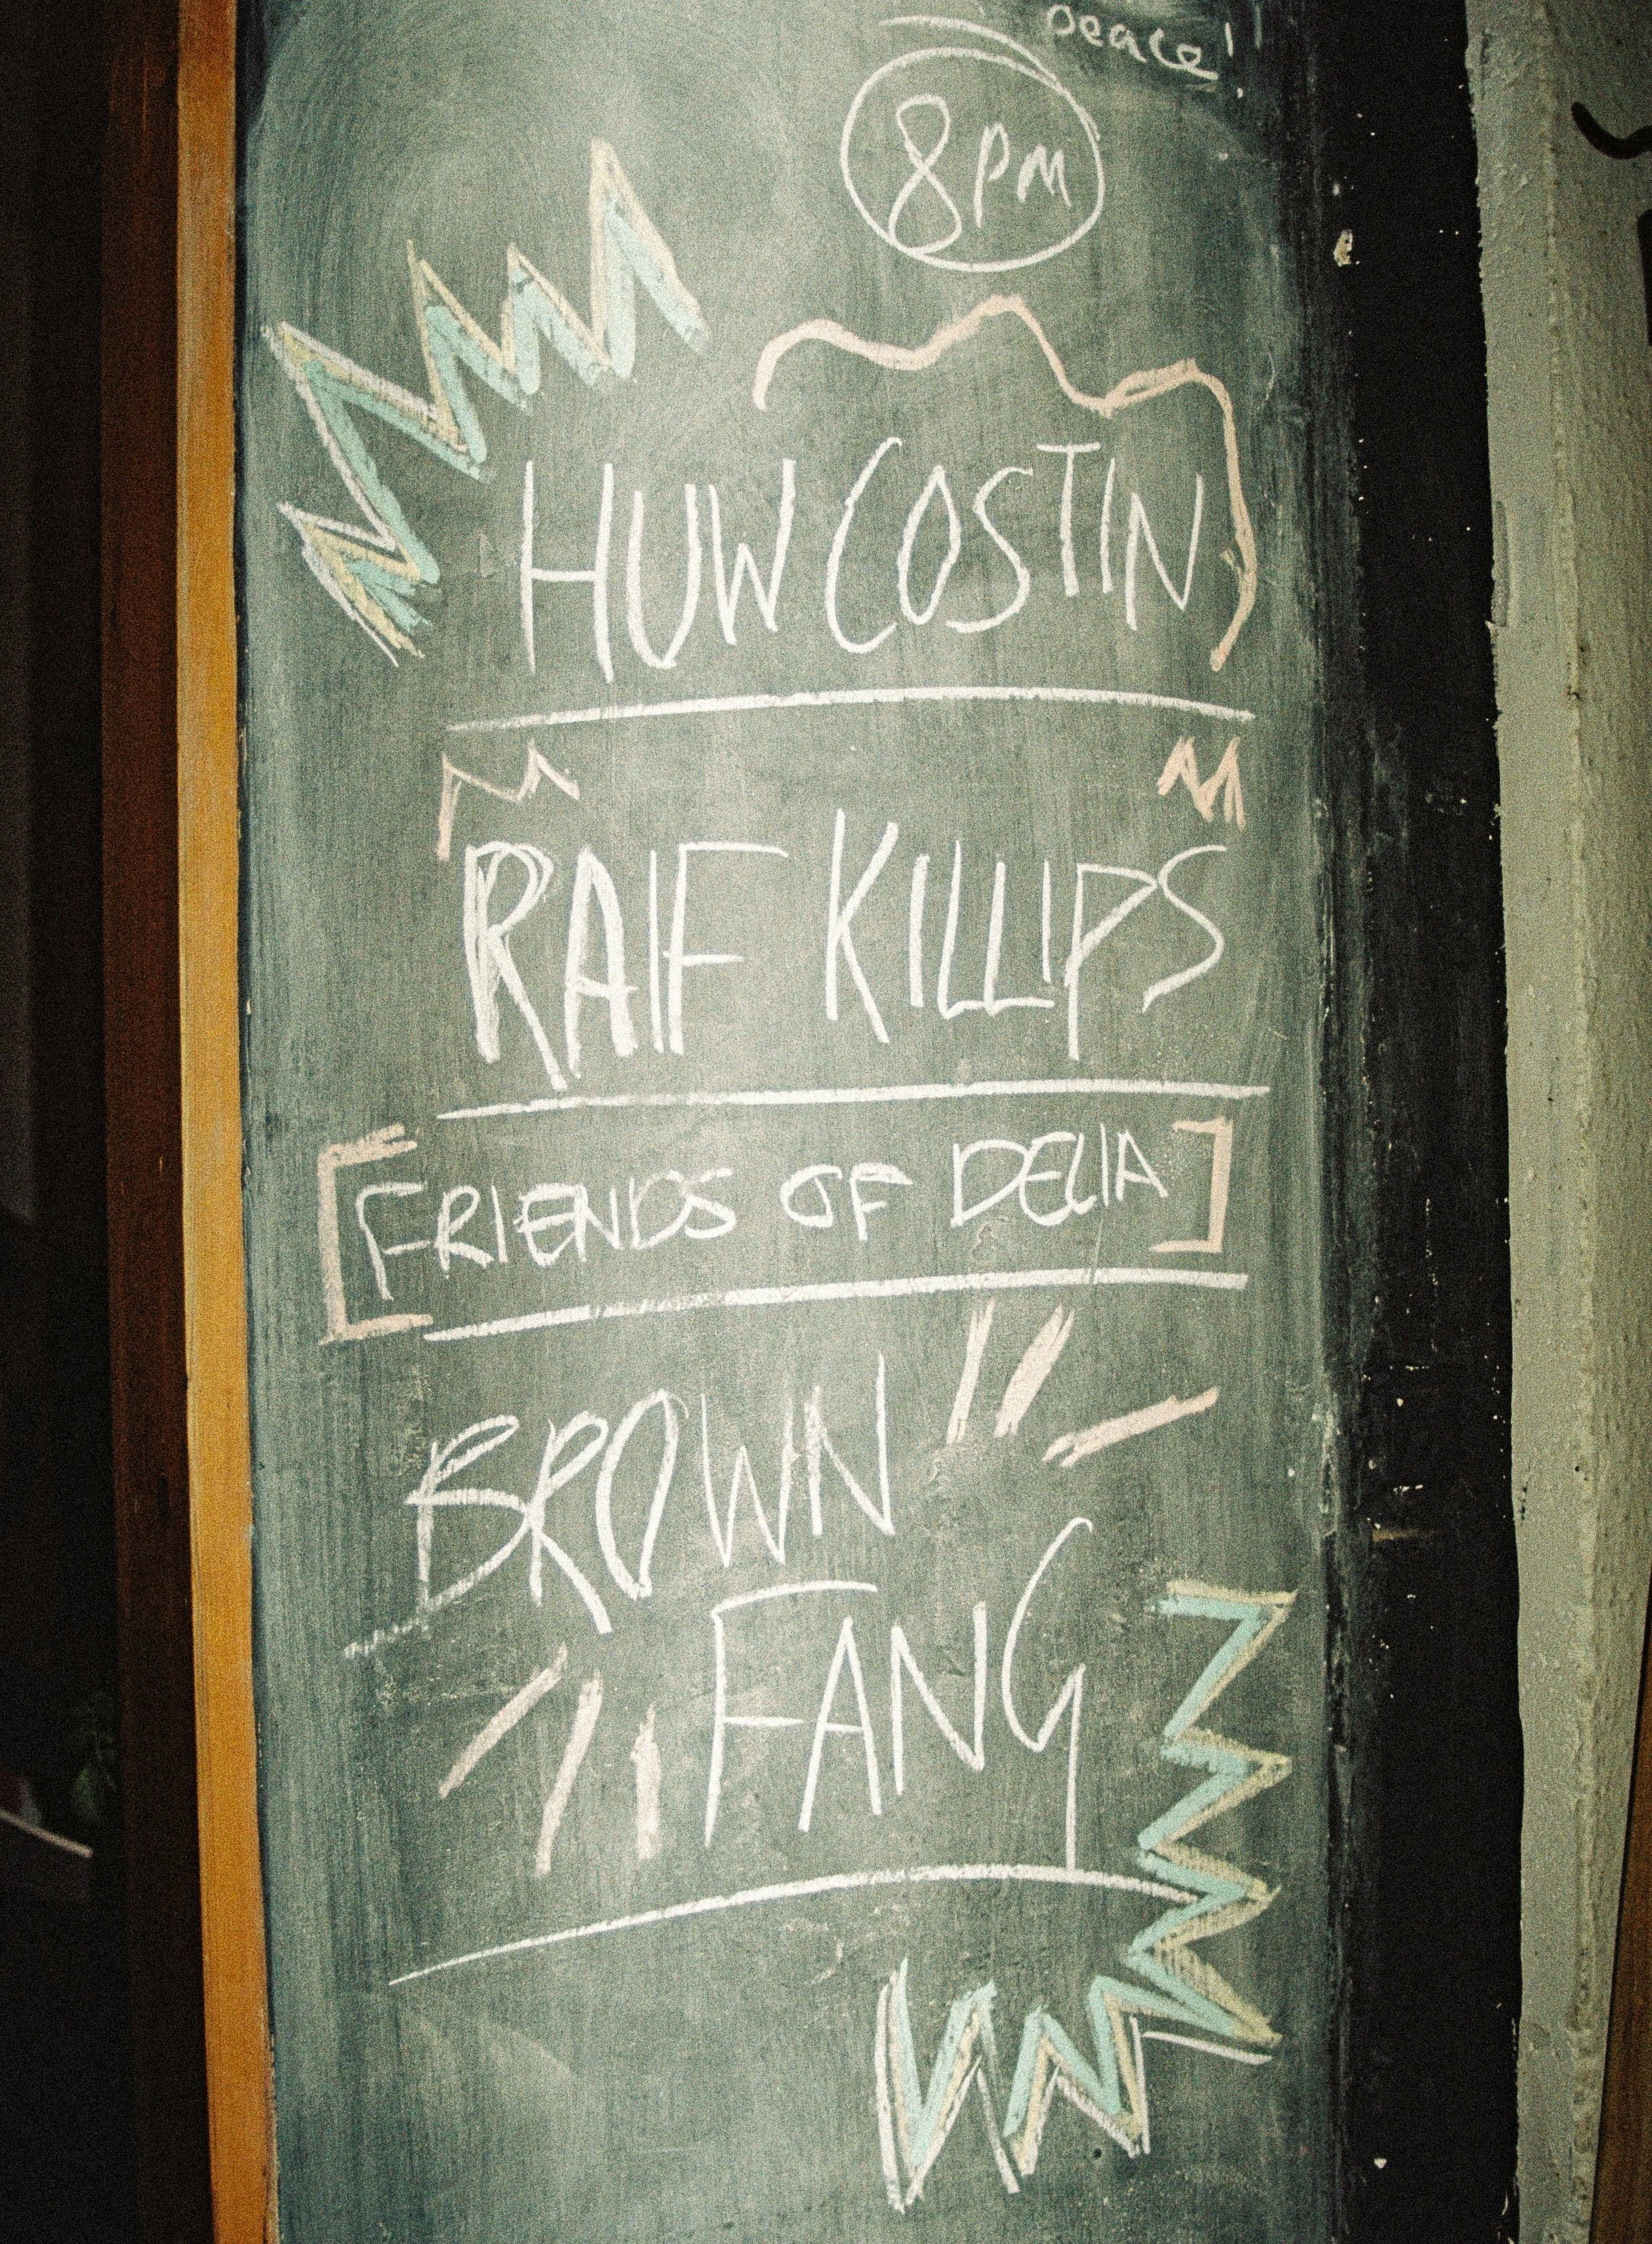 peace!
8PM
HUW COSTIN
RAIF KILLIPS
[FRIENDS OF DELIA]
BROWN
FANG